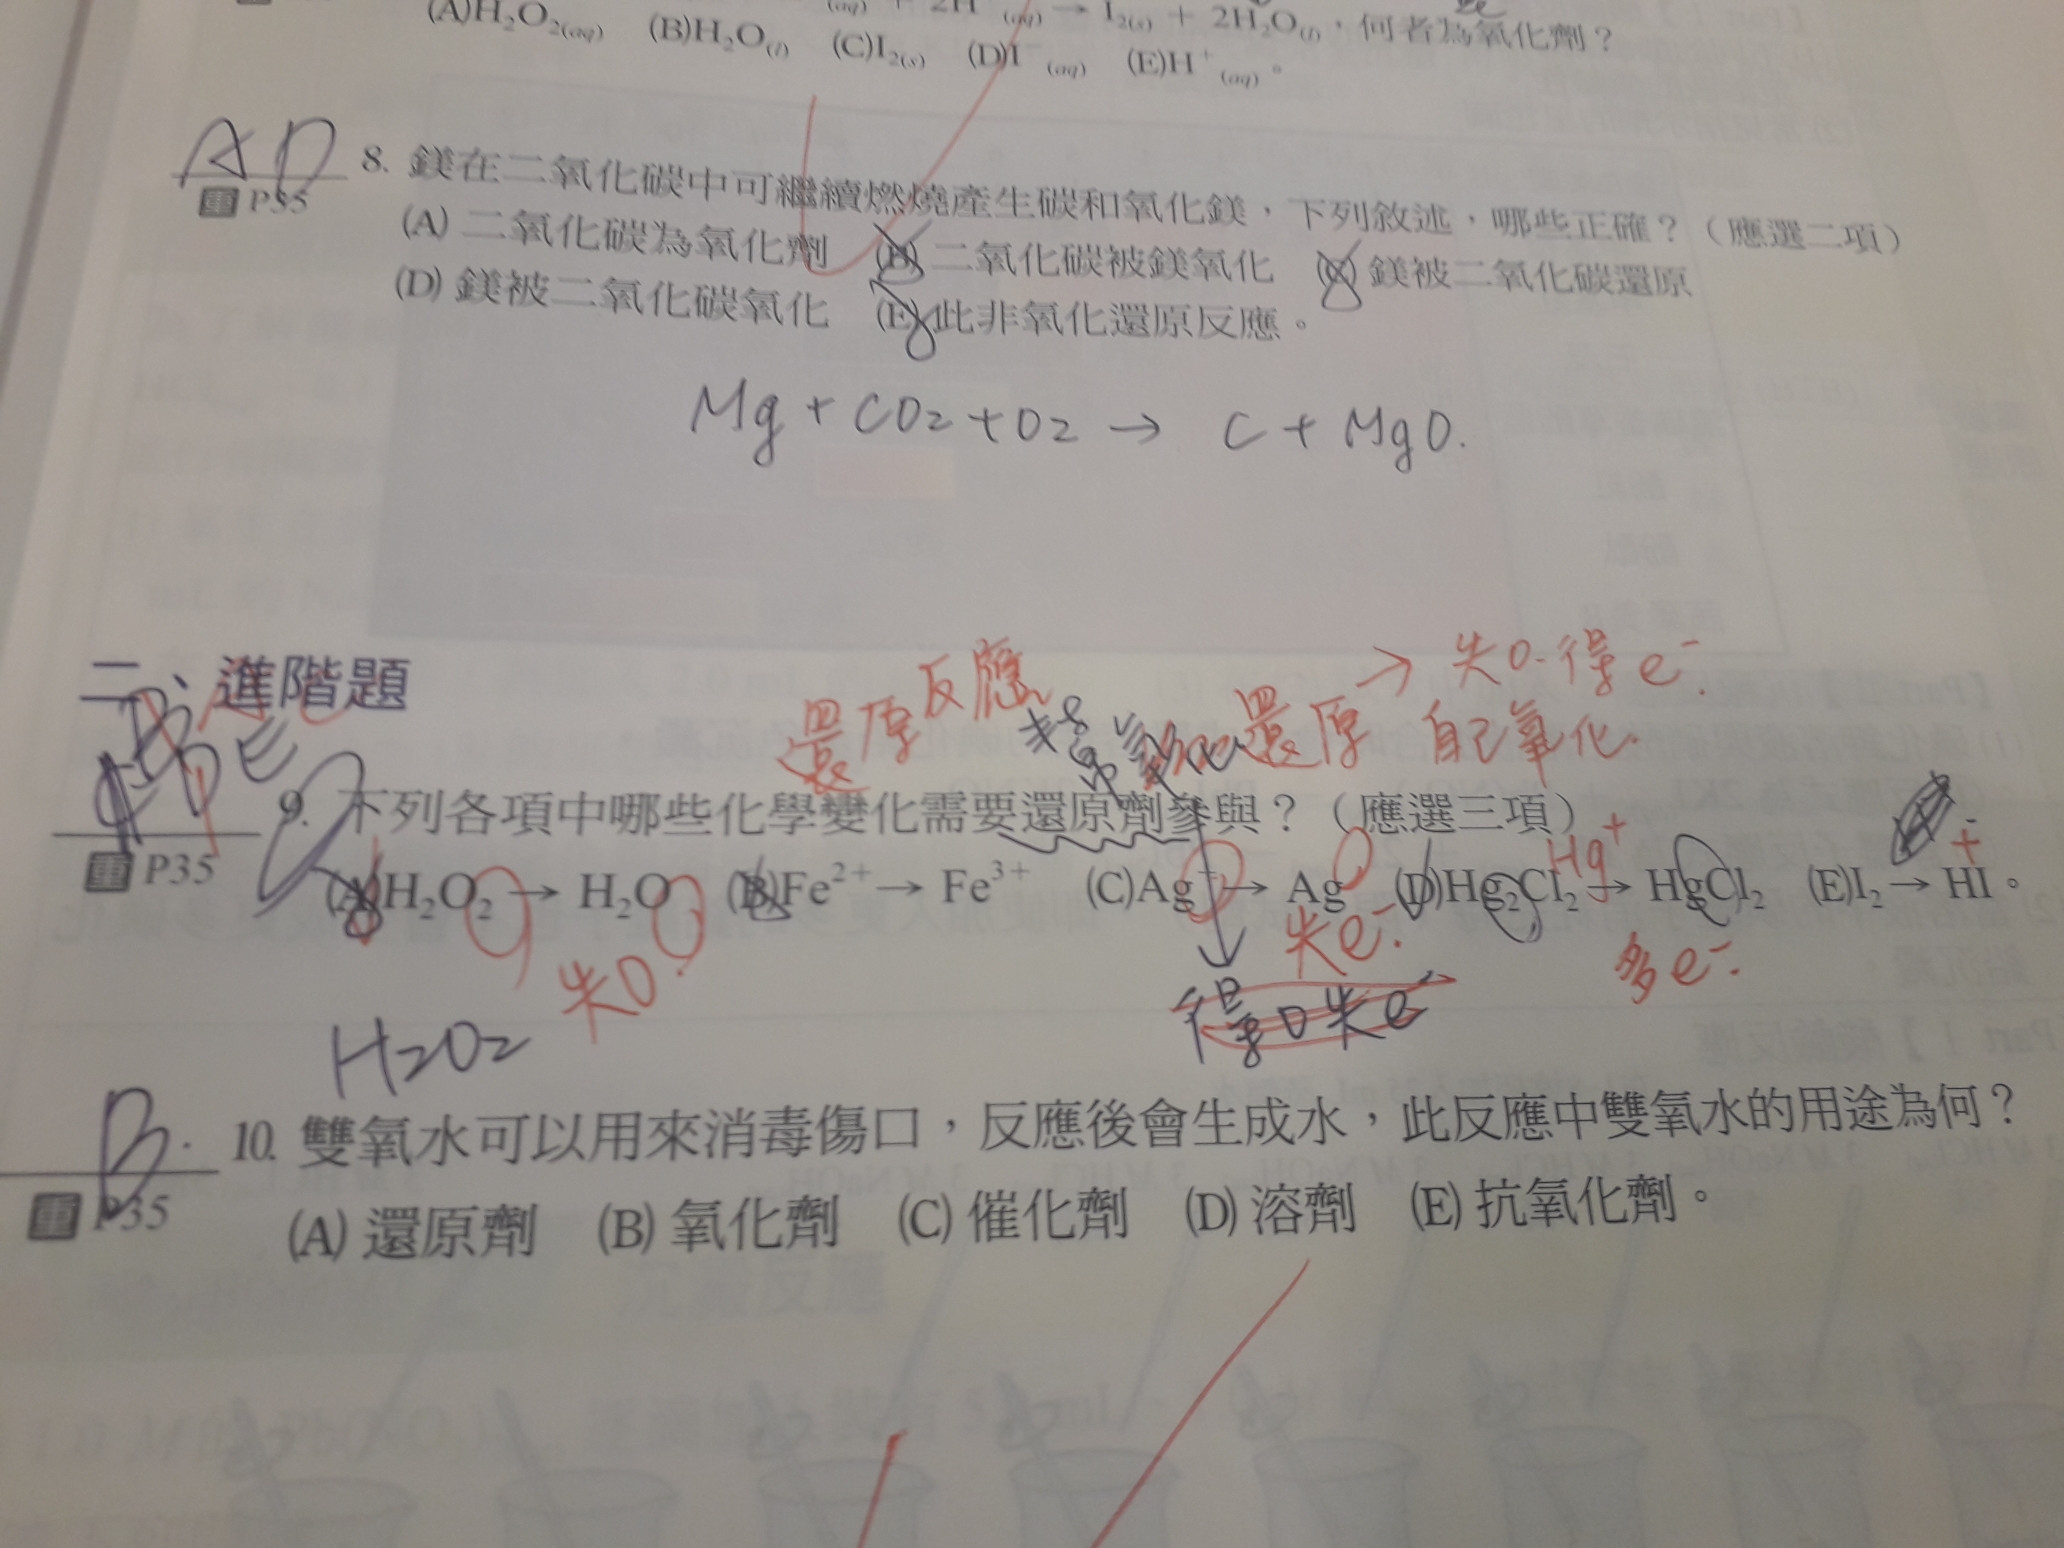 (aq) + 2H (aq) → I₂(s) + 2H₂O(l),何者為氧化劑?
(A)H₂O₂(aq) (B)H₂O(l) (C)I₂(s) (D)I⁻(aq) (E)H⁺(aq)。
AD
8. 鎂在二氧化碳中可繼續燃燒產生碳和氧化鎂,下列敘述,哪些正確?(應選二項)
P35
(A) 二氧化碳為氧化劑 (B) 二氧化碳被鎂氧化 (C) 鎂被二氧化碳還原
(D) 鎂被二氧化碳氧化 (E) 此非氧化還原反應。
Mg + CO₂ + O₂ → C + MgO.
二、進階題
還原反應 還原 → 失O.得e⁻.
自己氧化.
9. 下列各項中哪些化學變化需要還原劑參與?(應選三項)
P35
(A)H₂O₂ → H₂O (B)Fe²⁺ → Fe³⁺ (C)Ag⁺ → Ag (D)Hg₂Cl₂ → HgCl₂ (E)I₂ → HI。
Hg⁺
+
失O. 失e⁻. 多e⁻.
得O失e
H₂O₂
B.
10. 雙氧水可以用來消毒傷口,反應後會生成水,此反應中雙氧水的用途為何?
P35
(A) 還原劑 (B) 氧化劑 (C) 催化劑 (D) 溶劑 (E) 抗氧化劑。